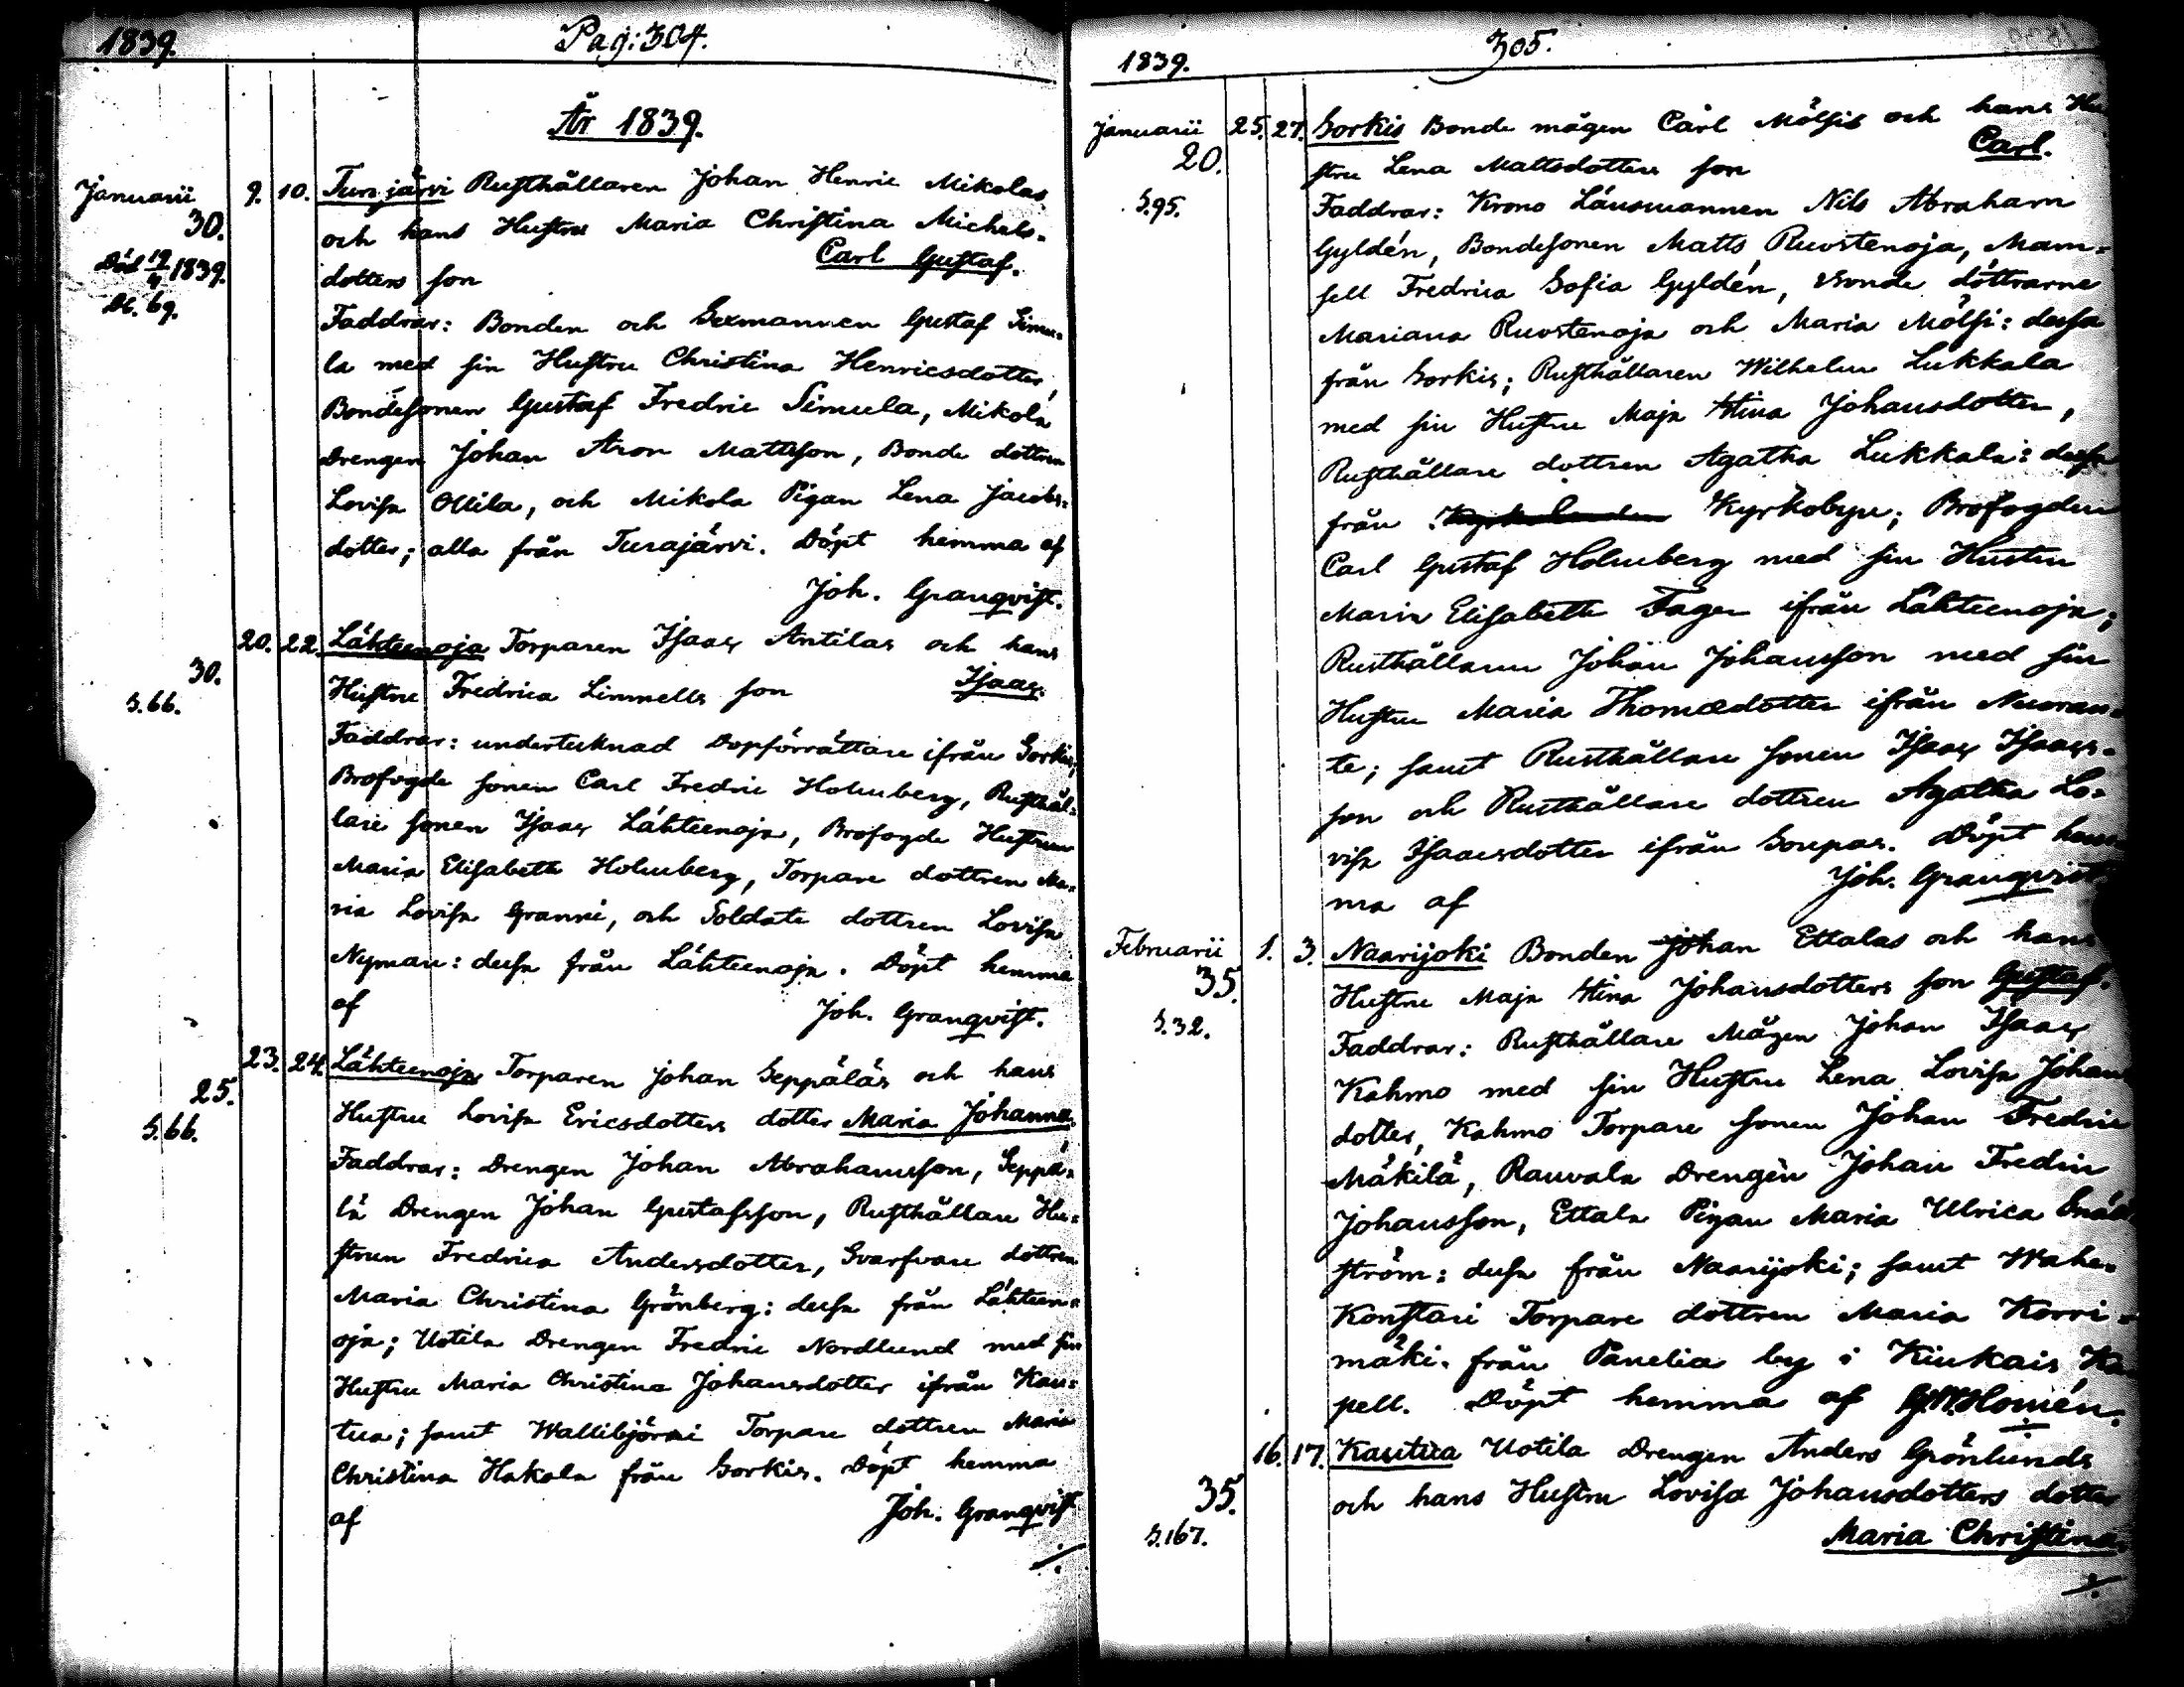 1839. Pag: 304.
År 1839.
Januarii 9. 10. Turajärvi Rusthållaren Johan Henric Mikolas
30. och hans Hustru Maria Christina Michels-
Död 19/4 1839. dotters son Carl Gustaf.
Db. 69.
Faddrar: Bonden och Sexmannen Gustaf Simu-
la med sin Hustru Christina Henricsdotter,
Bondesonen Gustaf Fredric Simula, Mikola
Drengen Johan Aron Mattsson, Bonde dottren
Lovisa Ollila, och Mikola Pigan Lena Jacobs-
dotter; alla från Turajärvi. Döpt hemma af
Joh. Granqvist.
20. 22. Lähteenoja Torparen Isaac Antilas och hans
30. Hustru Fredrica Limnells son Isaac.
S. 66.
Faddrar: undertecknad Dopförrättare ifrån Sorkis,
Brofogde sonen Carl Fredric Holmberg, Rusthål-
lare sonen Isaac Lähteenoja, Brofogde Hustrun
Maria Elisabeth Holmberg, Torpare dottren Ma-
ria Lovisa Granni, och Soldate dottren Lovisa
Nyman: dessa från Lähteenoja. Döpt hemma
af Joh. Granqvist.
23. 24. Lähteenoja Torparen Johan Seppäläs och hans
25. Hustru Lovisa Ericsdotters dotter Maria Johanna.
S. 66.
Faddrar: Drengen Johan Abrahamsson, Seppä-
lä Drengen Johan Gustafsson, Rusthållare Hu-
strun Fredrica Andersdotter, Svarfvare dottren
Maria Christina Grönberg: dessa från Lähteen-
oja; Uotila Drengen Fredric Nordlund med sin
Hustru Maria Christina Johansdotter ifrån Kau-
tua; samt Wallibjörni Torpare dottren Maria
Christina Hakala från Sorkis. Döpt hemma
af Joh. Granqvist
1839. 305.
Januarii 25. 27. Sorkis Bonde mågen Carl Mölsis och hans Hu
20. stru Lena Mattsdotters son Carl.
S. 95. Faddrar: Krono Länsmannen Nils Abraham
Gyldén, Bondesonen Matts Ruostenoja, Mam-
sell Fredrica Sofia Gyldén, Bonde döttrarne
Mariana Ruostenoja och Maria Mölsi: dessa
från Sorkis; Rusthållaren Wilhelm Lukkala
med sin Hustru Maja Stina Johansdotter,
Rusthållare dottren Agatha Lukkala: dessa
från Kyrkobyn; Brofogden
Carl Gustaf Holmberg med sin Hustru
Maria Elisabeth Fager ifrån Lähteenoja;
Rusthållaren Johan Johansson med sin
Hustru Maria Thomædotter ifrån Nuoran-
te; samt Rusthållare sonen Isaac Isaacs-
son och Rusthållare dottren Agatha Lo-
visa Isaacsdotter ifrån Sorkis. Döpt hem-
ma af Joh. Granqvist.
Februarii 1. 3. Naarijoki Bonden Johan Ettalas och hans
35. Hustru Maja Stina Johansdotters son Gustaf.
S. 32. Faddrar: Rusthållare Mågen Johan Isaac
Kahmo med sin Hustru Lena Lovisa Johans
dotter, Kahmo Torpare sonen Johan Fredric
Mäkilä, Rauvala Drengen Johan Fredric
Johansson, Ettala Pigan Maria Ulrica
ström: dessa från Naarijoki; samt Wahe-
Konstari Torpare dottren Maria Korri-
mäki från Panelia by i Kiukais Ka
pell. Döpt hemma af G.W. Homén.
16. 17. Kautua Uotila Drengen Anders Grönlunds
35. och hans Hustru Lovisa Johansdotters dotter
S. 167. Maria Christina.